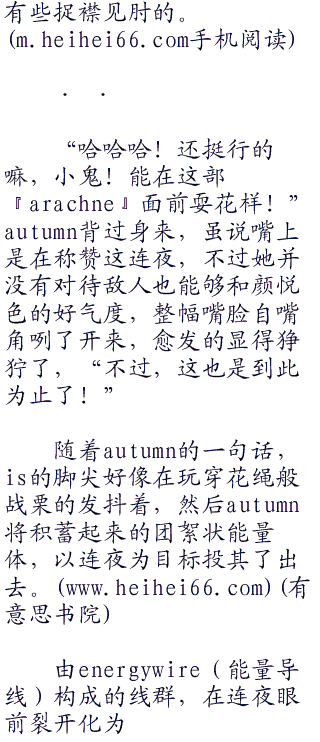 有些捉襟见肘的。
(m.heihei66.com手机阅读)
． ．
“哈哈哈！还挺行的
嘛，小鬼！能在这部
『arachne』面前耍花样！”
autumn背过身来，虽说嘴上
是在称赞这连夜，不过她并
没有对待敌人也能够和颜悦
色的好气度，整幅嘴脸自嘴
角咧了开来，愈发的显得狰
狞了，“不过，这也是到此
为止了！”
随着autumn的一句话，
is的脚尖好像在玩穿花绳般
战栗的发抖着，然后autumn
将积蓄起来的团絮状能量
体，以连夜为目标投其了出
去。(www.heihei66.com)(有
意思书院)
由energywire（能量导
线）构成的线群，在连夜眼
前裂开化为